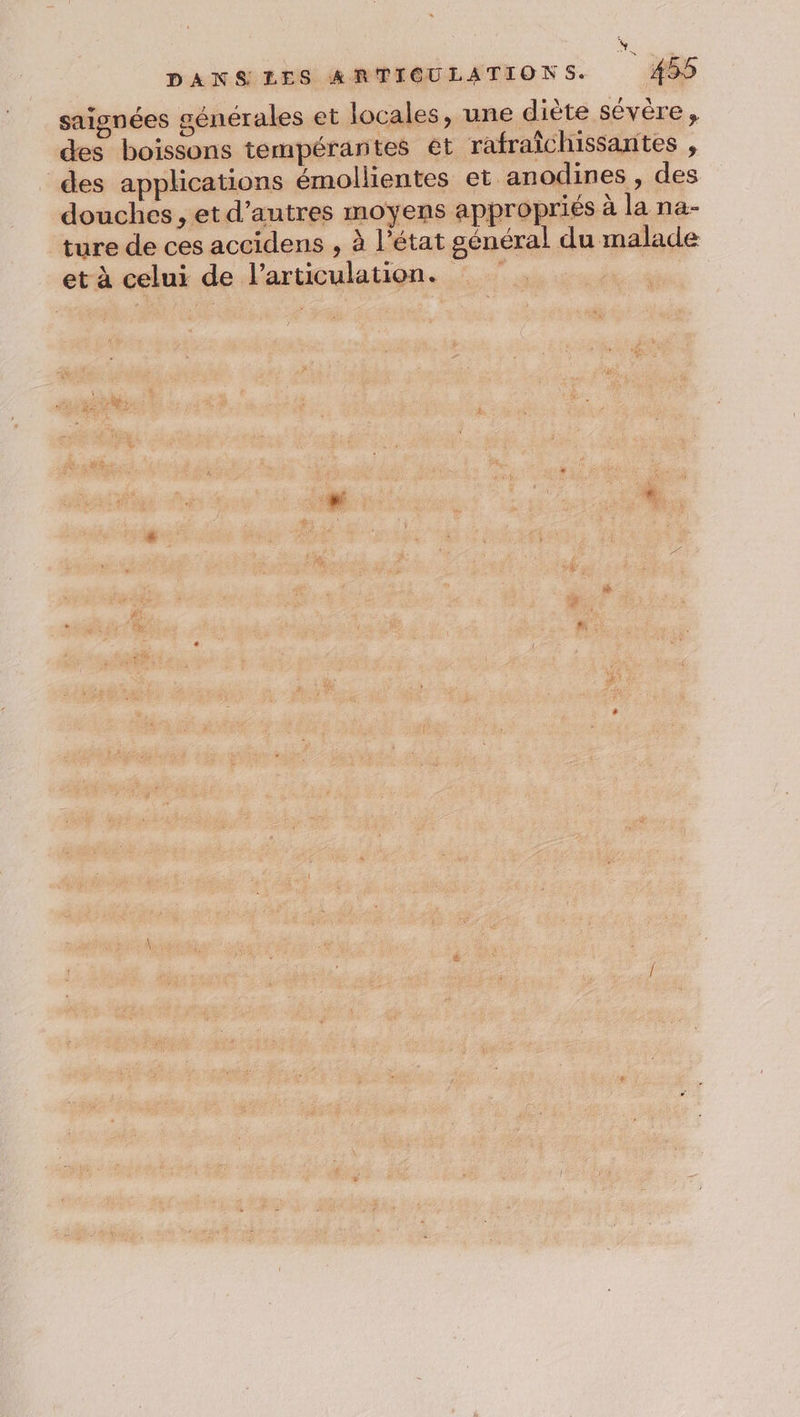 DANS LES ARTICULATIONS. 455
saignées générales et locales, une diète sévère,
des boissons tempérantes et rafraîchissantes,
des applications émollientes et anodines, des
douches, et d'autres moyens appropriés à la na-
ture de ces accidens, à l'état général du malade
et à celui de l'articulation.